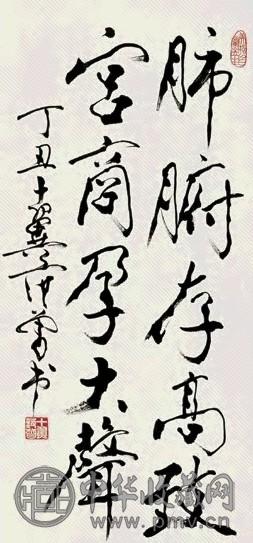 肺腑存高致
宫商孕大声
丁丑十翼
书
中华收藏网
www.pmv.cn